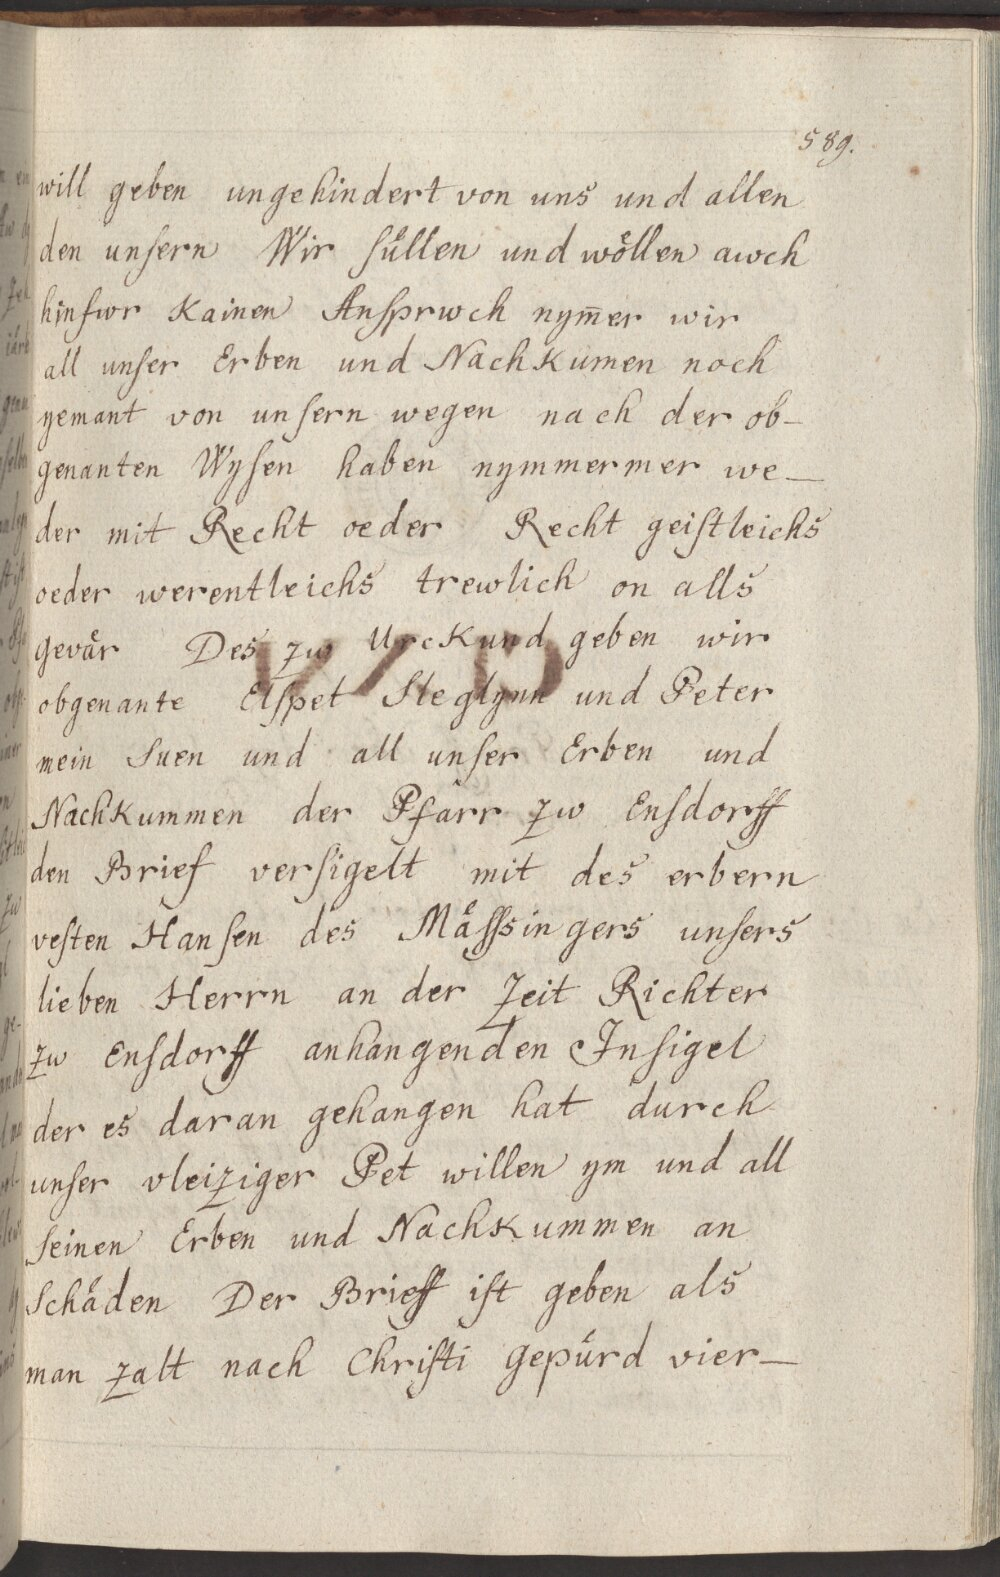 589.
will geben ungehindert von uns und allen
den unsern Wir sůllen und wo͑llen awch
hinfwr Kainen Ansprwch nym̄er wir
all unser Erben und NachKumen noch
yemant von unsern wegen nach der ob-
genanten Wysen haben nymmermer we-
der mit Recht oeder Recht geistleichs
oeder werentleichs trewlich on alls
gevaͤr Des zw UrcKund geben wir
obgenante Elspet Steglynn und Peter
mein Suen und all unser Erben und
NachKummen der Pfarr zw Ensdorff
den Brief versigelt mit des erbern
vesten Hansen des Maͤssingers unsers
lieben Herrn an der Zeit Richter
zw Ensdorff anhangenden Insigel
der es daran gehangen hat durch
unser vleiziger Pet willen ym und all
seinen Erben und NachKummen an
Schaͤden Der Brieff ist geben als
man zalt nach Christi gepuͤrd vier-